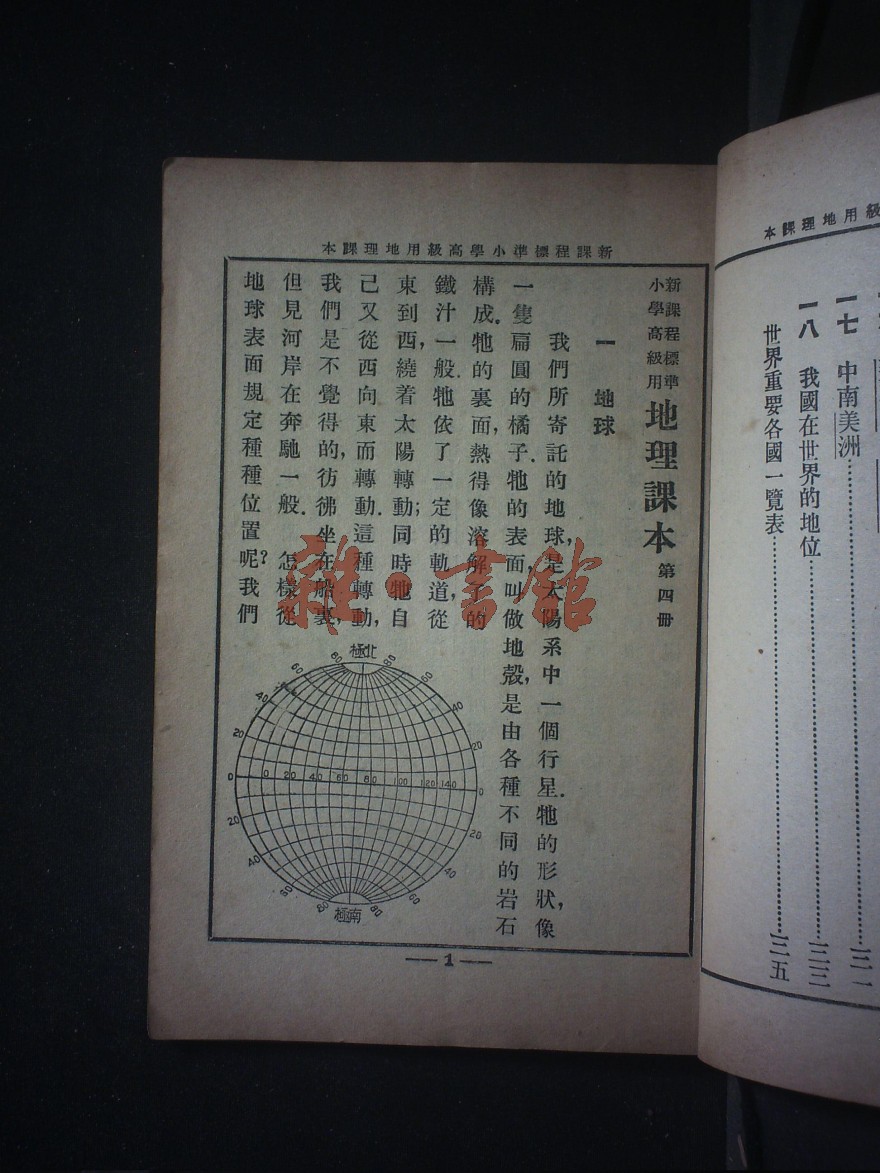 新課程標準小學高級用地理課本
新課程標準
小學高級用
地理課本 第四冊
一 地球
我們所寄託的地球,是太陽系中一個行星.牠的形狀,像
一隻扁圓的橘子.牠的表面,叫做地殼,是由各種不同的岩石
構成.牠的裏面,熱得像溶解了的
鐵汁一般.牠依了一定的軌道,從
東到西,繞着太陽轉動;同時牠自
己又從西向東而轉動.這種轉動,
我們是不覺得的,彷彿坐在船裏,
但見河岸在奔馳一般. 怎樣從
地球表面規定種種位置呢?我們
北極
80 60 40 20 0 20 40 60 80
80 60 40 20 0 20 40 60 80
0 20 40 60 80 100 120 140
南極
—1—
級用地理課本
一七 中南美洲……三一
一八 我國在世界的地位……三三
世界重要各國一覽表……三五
雜·書館